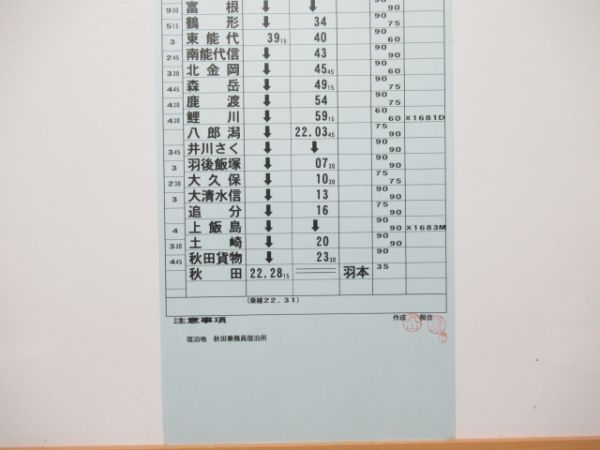 930 富根 ↓ ↓ 90 90
515 鶴形 ↓ 34 90 75
3 東能代 39 15 40 90 60
245 南能代信 ↓ 43
330 北金岡 ↓ 45 45 90 60
445 森岳 ↓ 49 15 90 75
430 鹿渡 ↓ 54 90
430 鯉川 ↓ 59 15 60 60 X1681D
八郎潟 ↓ 22.03 45 75 90
345 井川さく ↓ ↓ 90
3 羽後飯塚 ↓ 07 30 90 90
230 大久保 ↓ 10 30 90 75
3 大清水信 ↓ 13 90
追分 ↓ 16 75 90
4 上飯島 ↓ ↓ 90 90 X1683M
330 土崎 ↓ 20 90 90
445 秋田貨物 ↓ 23 30 90
秋田 22.28 15 羽本 35
(乗継22.31)
注意事項 作成 照合
宿泊地 秋田乗務員宿泊所